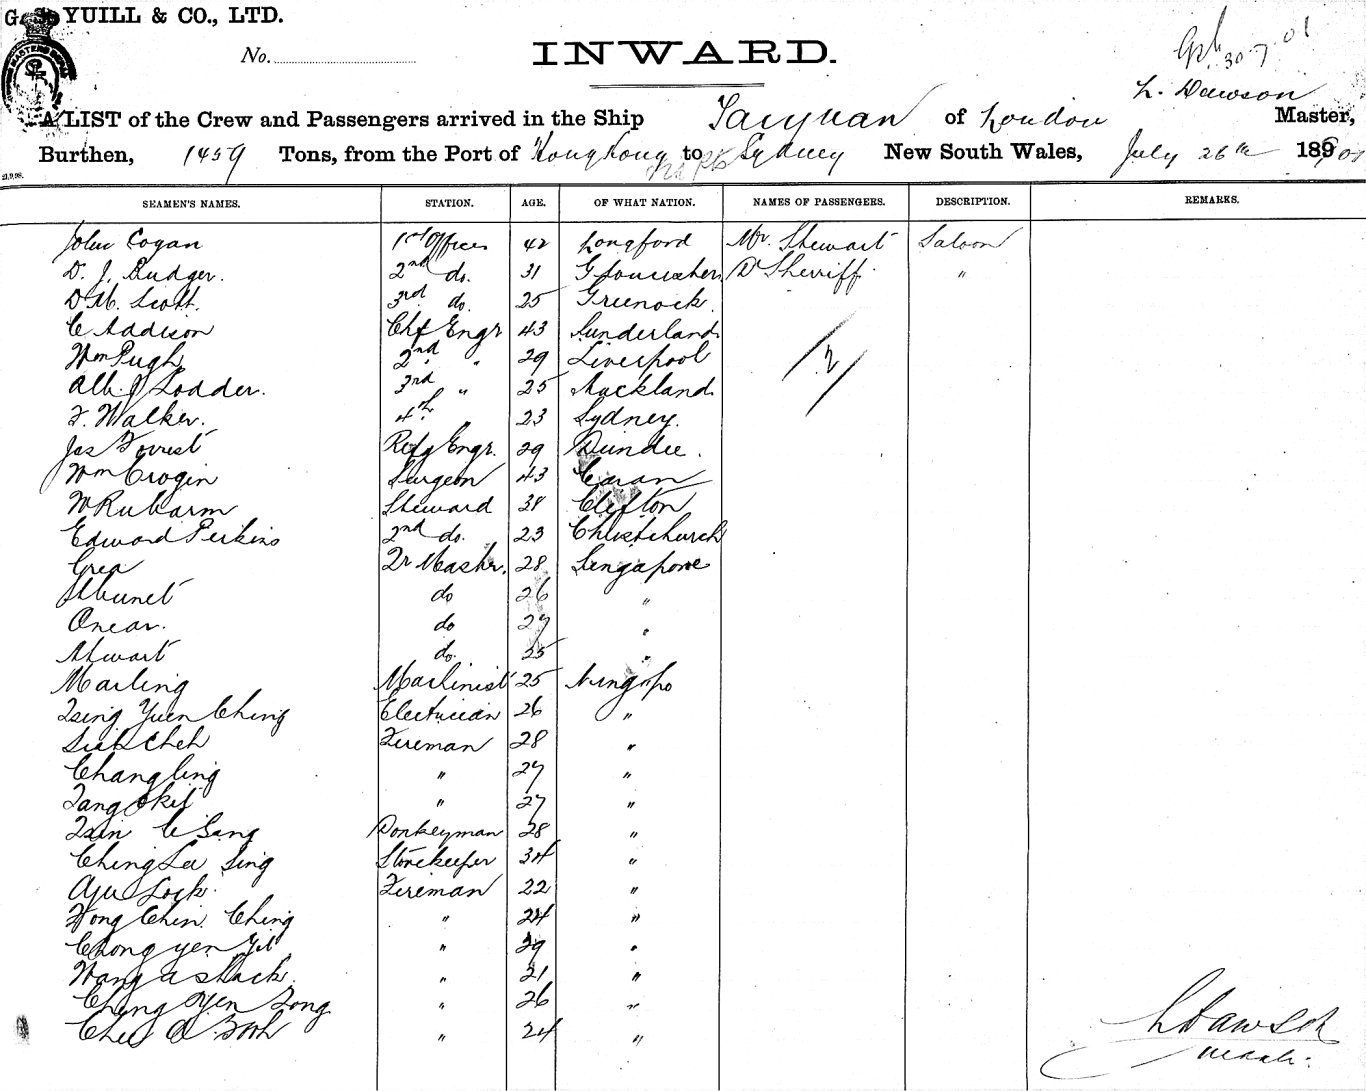 YUILL & CO., LTD.
No.
INWARD.
30.7.01
L. Dawson
A LIST of the Crew and Passengers arrived in the Ship Taiyuan of London Master,
Burthen, 1459 Tons, from the Port of Hong Kong to Sydney New South Wales, July 26th 1901
21.9.98.
SEAMEN'S NAMES. STATION. AGE. OF WHAT NATION. NAMES OF PASSENGERS. DESCRIPTION. REMARKS.
John Cogan 1st Officer 42 Longford Mr. Stewart Saloon
D. J. Budger. 2nd do. 31 Gloucester D Sherriff. "
D M. Scott. 3rd do 25 Greenock
C Addison Chf Engr 43 Sunderland
Wm Pugh 2nd " 29 Liverpool 2
Alb. J Lodder. 3rd " 25 Auckland
F. Walker. 4th 23 Sydney.
Jas Forrest Refg Engr. 29 Dundee.
Wm Crogin Surgeon 43 Cavan
W Ruharm Steward 38 Clifton
Edward Perkins 2nd do. 23 Christchurch
Grea Qr Mastr. 28 Singapore
do 26 "
Onear. do 27 "
Ahwart do. 25 "
Marling Machinist 25 Ningpo
Tsing Yuen Ching Electrician 26 "
Siah Cheh Fireman 28 "
Changling " 27 "
Tang Skit " 27 "
C Sang Donkeyman 28 "
Ching Lee Sing Storekeeper 34 "
Aju Lock. Fireman 22 "
Wong Chin Ching " 24 "
Chong yen " 29 "
Wang a shack. " 21 "
Ching Yen Tong " 26 "
Chee A " 24 "
L Dawson